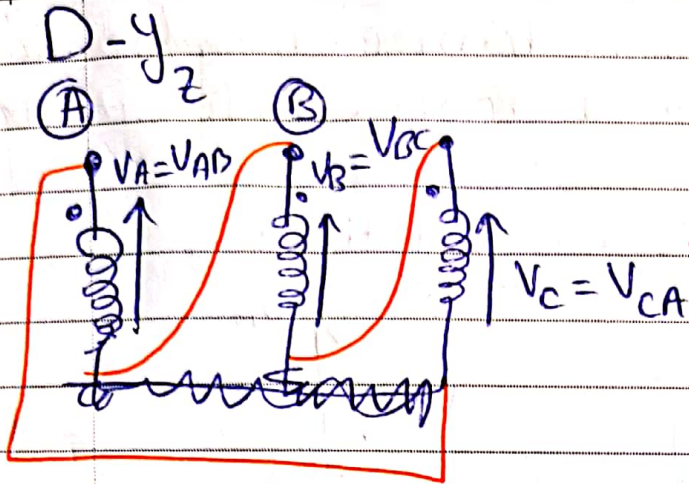 D-yz
A B
VA=VAB VB=VBC
VC=VCA